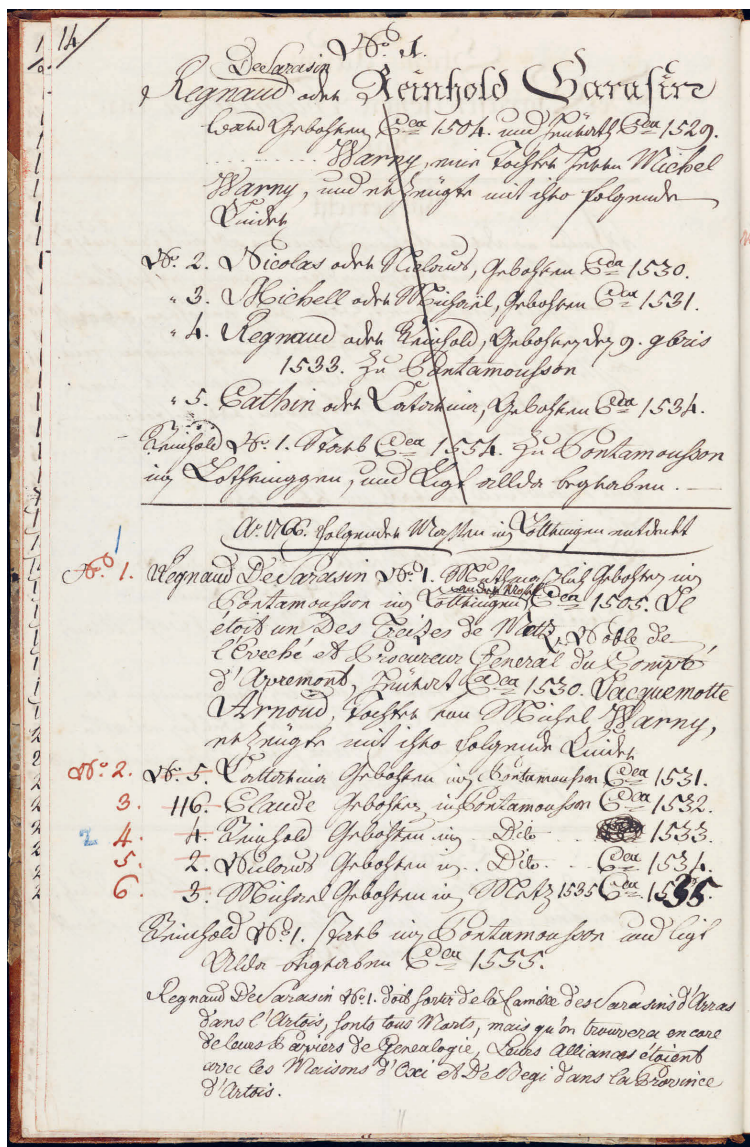 14
N.º 1.
De Sarasin
Regnaud oder Reinhold Sarasin
ward Gebohren Cca 1504. und heürath Cca 1529.
........ Warny, eine Tochter Herrn Michel
Warny, und erzeügte mit ihro folgende
Kinder
N.º 2. Nicolas oder Niclaus, Gebohren Cca 1530.
" 3. Michell oder Michael, Gebohren Cca 1531.
" 4. Regnaud oder Reinhold, Gebohren den 9. 9bris
1533. Zu Pontamousson
" 5. Cathin oder Catarina, Gebohren Cca 1534.
Reinhold N.º 1. Starb Cca 1554. Zu Pontamousson
in Lothringgen, und Ligt allda begraben.
Aº 1766. folgender Massen in Lottringen entdeckt
1
N.º 1. Regnaud De Sarasin N.º 1. Muthmaßlich Gebohren in
Pontamousson in Lottringen Cca 1505. Il
étoit un Des Treizes de Metz, Noble de
l'Eveché et Procureur General du Compté
d'Apremont, heürath Cca 1530. Jacquemotte
Arnoud, Tochter von Michel Warny,
erzeügte mit ihro folgende Kinder
N.º 2. N.º 5. Cattarina Gebohren in Pontamousson Cca 1531.
3. 116. Claude Gebohren in Pontamousson Cca 1532.
2 4. 4. Reinhold Gebohren in .. Dito .. 1533.
5. 2. Niclaus Gebohren in .. Dito .. Cca 1534.
6. 3. Michael Gebohren in Metz 1535 Cca 1535
Reinhold N.º 1. starb in Pontamousson und ligt
Allda begraben Cca 1555.
Regnaud De Sarasin N.º 1. doit sortir de la Famille des Sarasins d'Arras
dans l'Artois, sonts tous Morts, mais qu'on trouvera encore
de leurs Papiers de Genealogie, Leurs Alliances étoient
avec les Maisons d'Oxi et De Begi dans la Province
d'Artois.